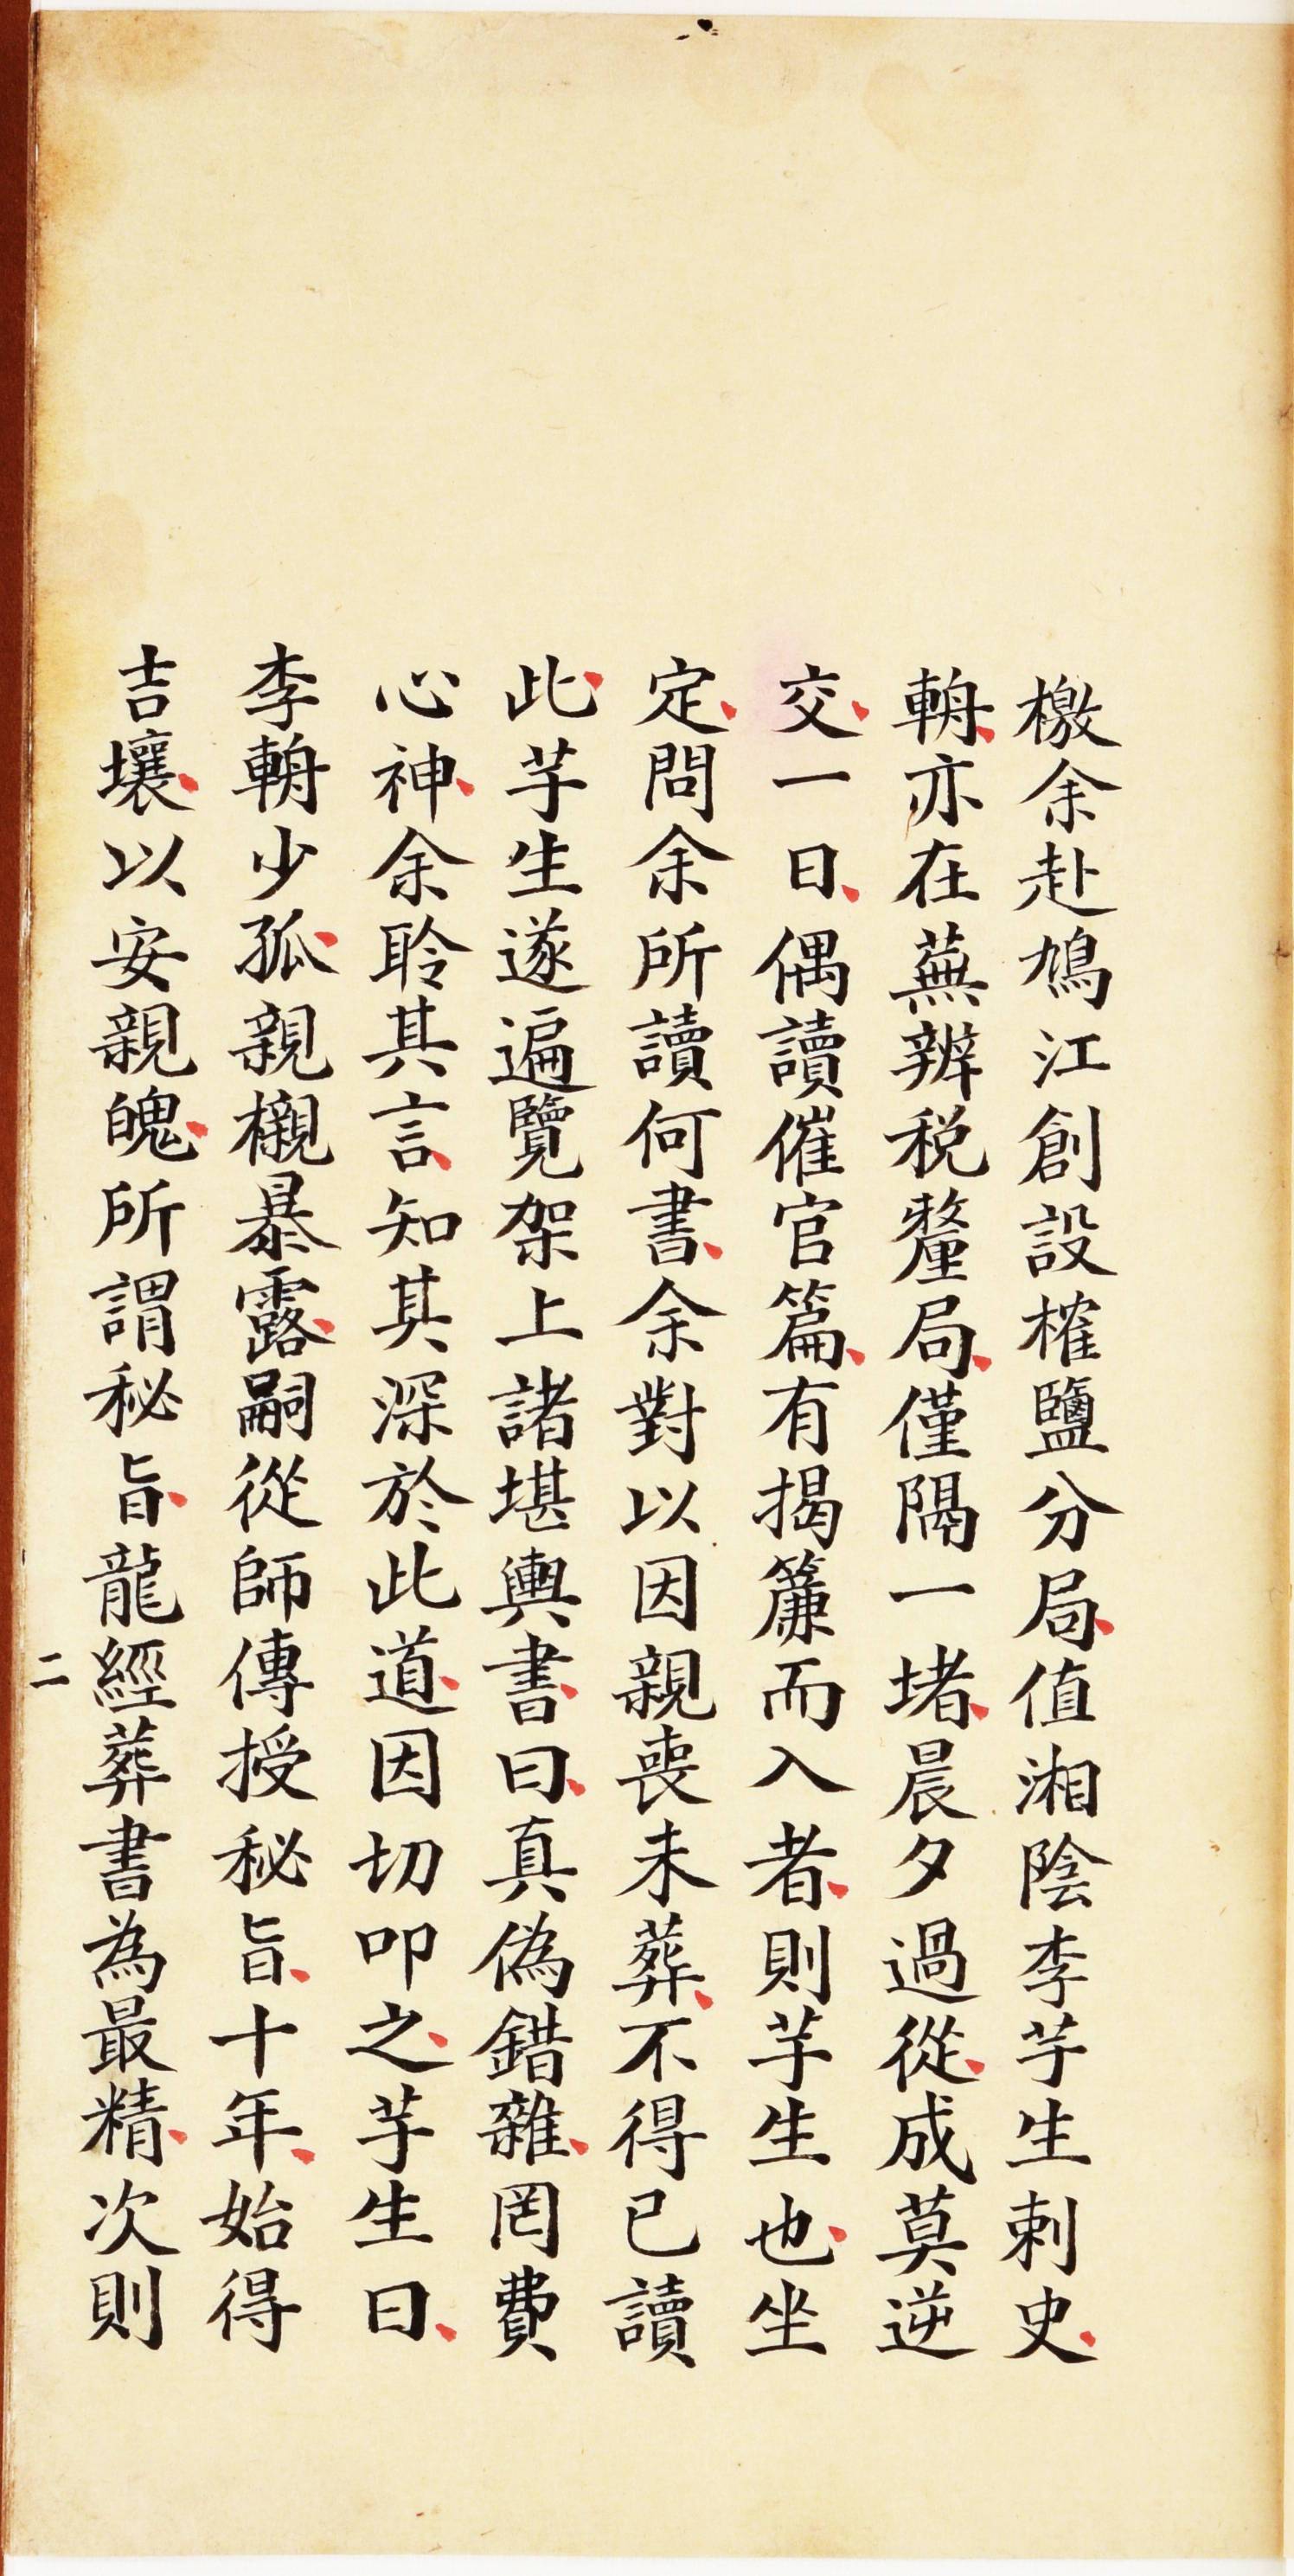 檄余赴鳩江創設榷鹽分局值湘陰李芋生刺史
輈亦在蕪辦税釐局僅隔一堵晨夕過從成莫逆
交一日偶讀催官篇有揭簾而入者則芋生也坐
定問余所讀何書余對以因親喪未葬不得已讀
此芋生遂遍覽架上諸堪輿書曰真偽錯雜罔費
心神余聆其言知其深於此道因切叩之芋生曰
李輈少孤親櫬暴露嗣從師傳授秘旨十年始得
吉壤以安親魄所謂秘旨龍經葬書為最精次則
二